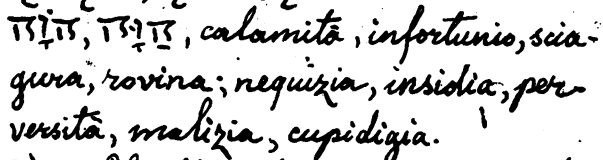 calamità, infortunio, scia-
gura, rovina; nequizia, insidia, per-
versità, malizia, cupidigia.